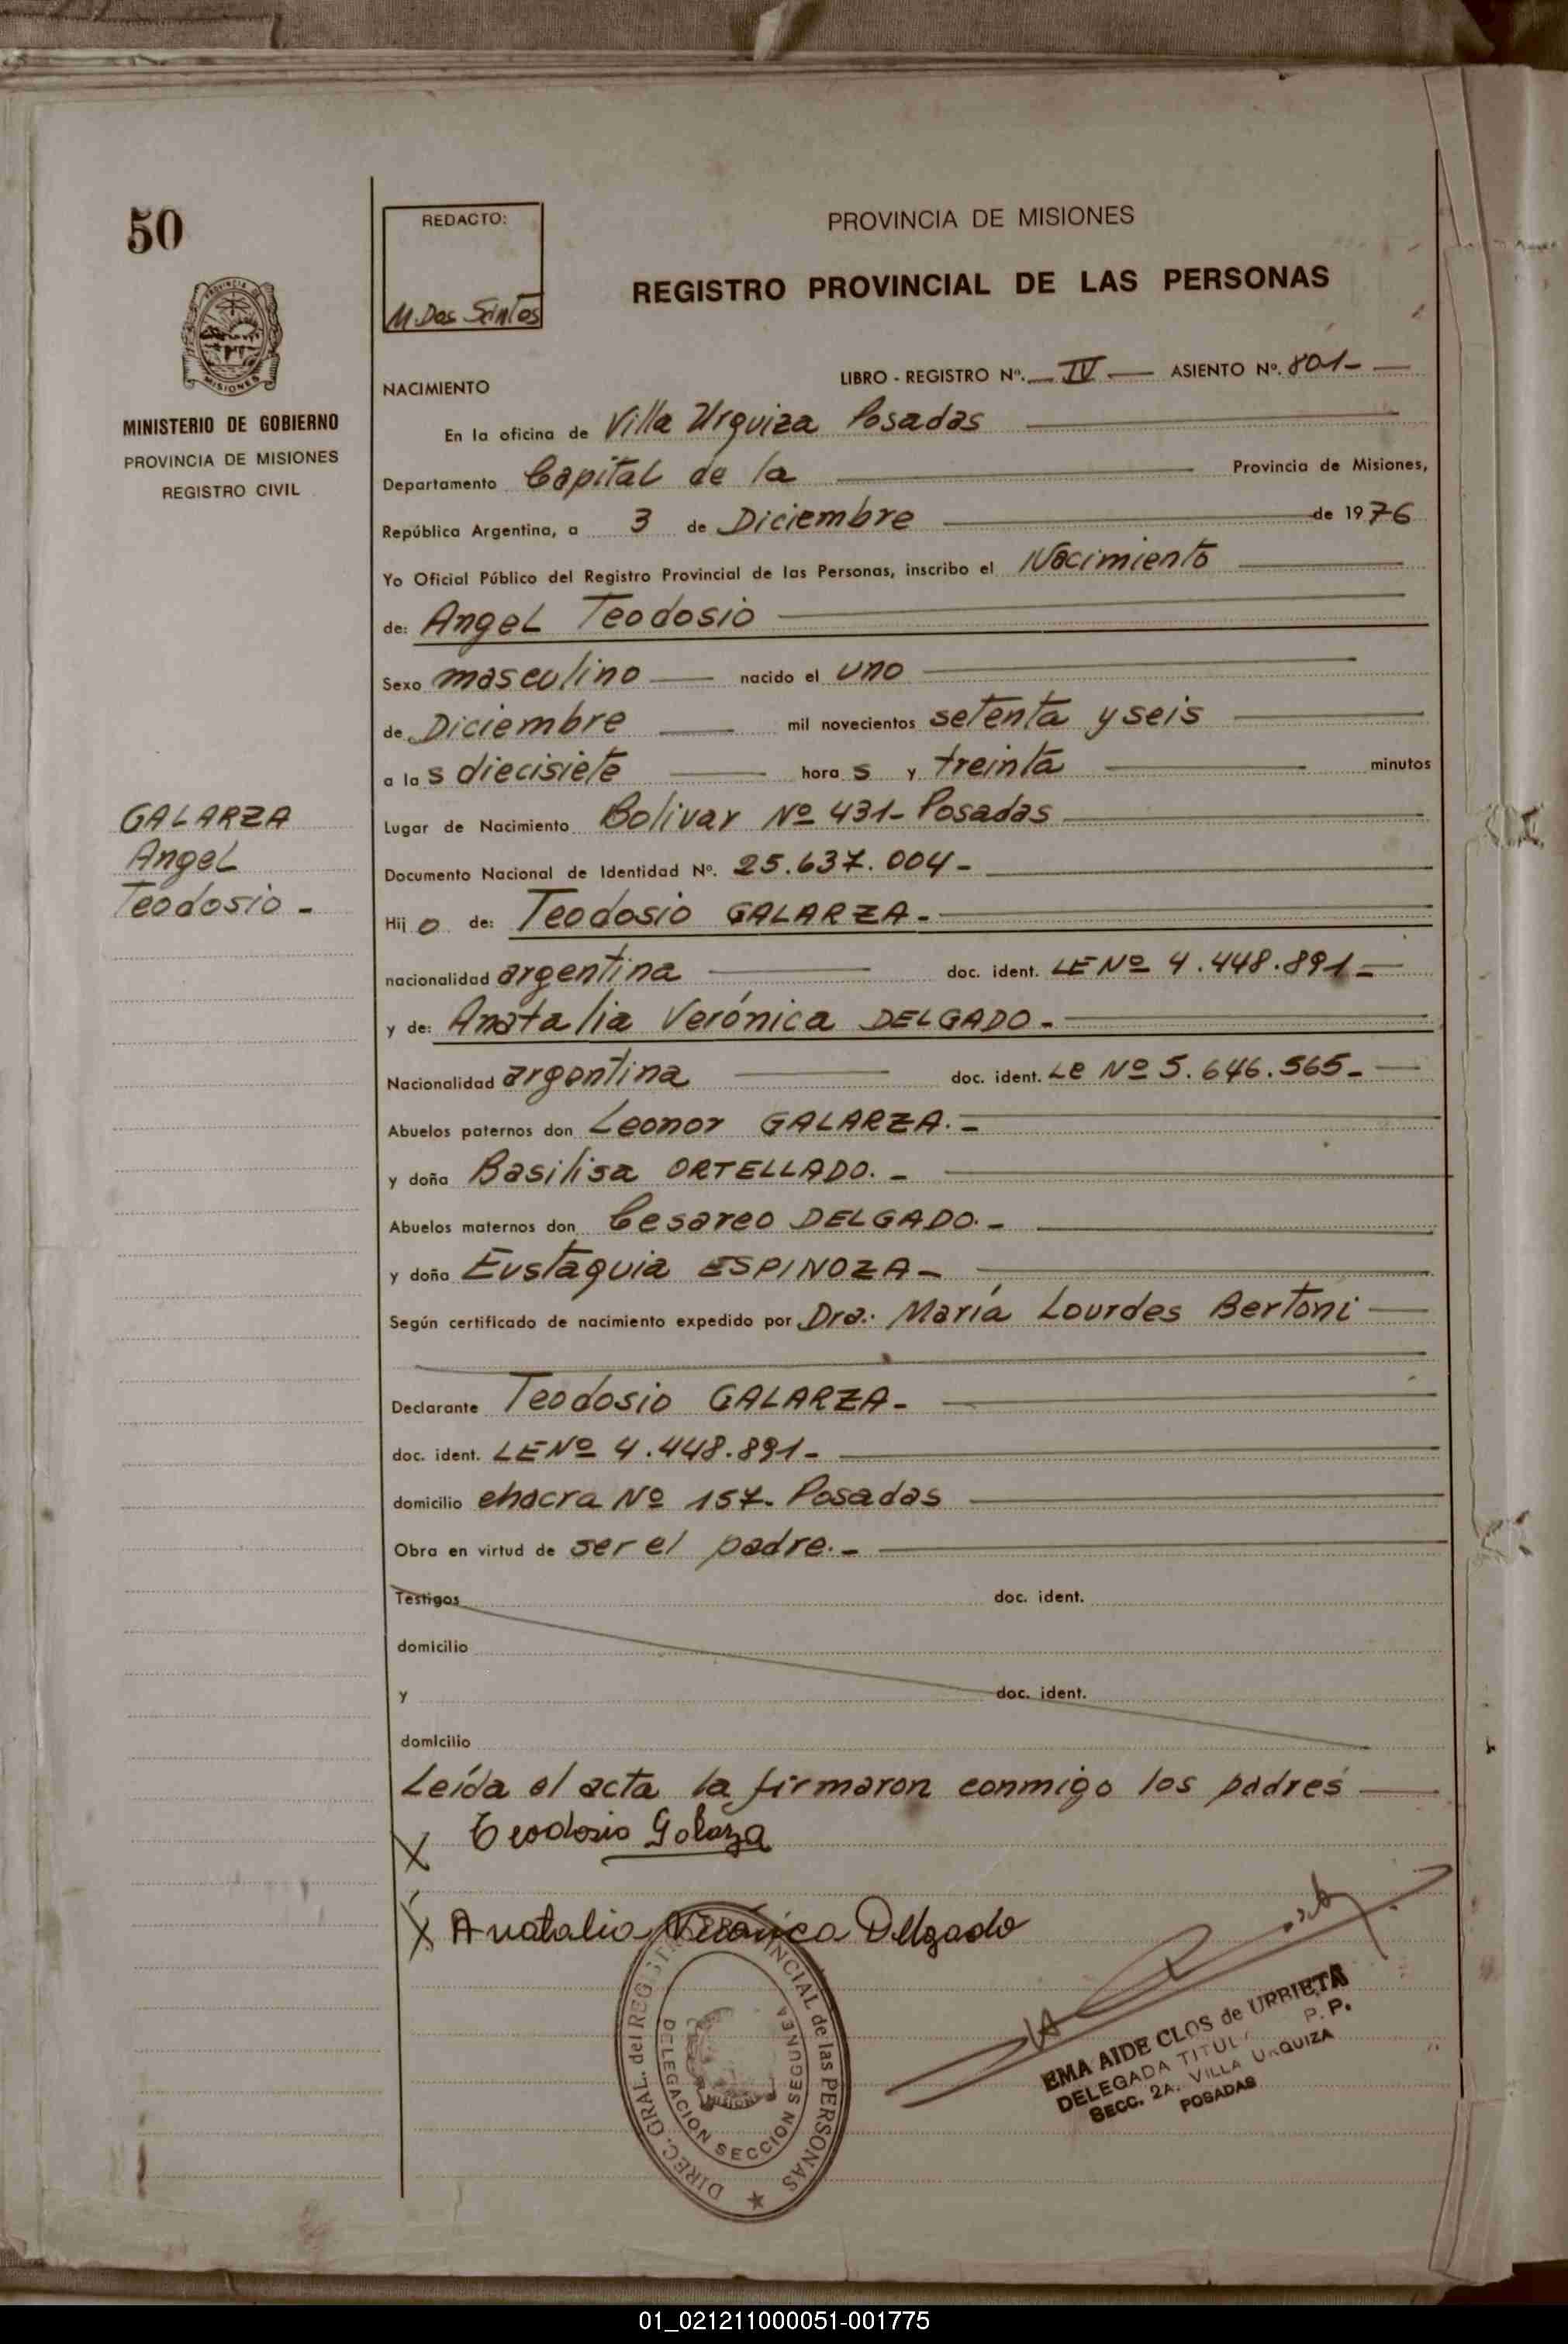 50
REDACTO:
M. Dos Santos
PROVINCIA DE MISIONES
REGISTRO PROVINCIAL DE LAS PERSONAS
MISIONES
MINISTERIO DE GOBIERNO
PROVINCIA DE MISIONES
REGISTRO CIVIL
NACIMIENTO
LIBRO - REGISTRO Nº. IV ASIENTO Nº. 801-
En la oficina de Villa Urquiza Posadas
Departamento Capital de la Provincia de Misiones,
República Argentina, a 3 de Diciembre de 1976
Yo Oficial Público del Registro Provincial de las Personas, inscribo el Nacimiento
de: Angel Teodosio
Sexo masculino nacido el uno
de Diciembre mil novecientos setenta y seis
a las diecisiete horas y treinta minutos
Lugar de Nacimiento Bolivar Nº 431- Posadas
Documento Nacional de Identidad Nº. 25.637.004-
GALARZA
Angel
Teodosio -
Hijo de: Teodosio GALARZA.-
nacionalidad argentina doc. ident. LE Nº 4.448.891-
y de: Anatalia Verónica DELGADO.-
Nacionalidad argentina doc. ident. LE Nº 5.646.565-
Abuelos paternos don Leonor GALARZA.-
y doña Basilisa ORTELLADO.-
Abuelos maternos don Cesareo DELGADO.-
y doña Eustaquia ESPINOZA-
Según certificado de nacimiento expedido por Dra. María Lourdes Bertoni
Declarante Teodosio GALARZA-
doc. ident. LE Nº 4.448.891-
domicilio chacra Nº 157- Posadas
Obra en virtud de ser el padre.-
Testigos doc. ident.
domicilio
y doc. ident.
domicilio
Leída el acta la firmaron conmigo los padres
X Teodosio Galarza
X Anatalia Verónica Delgado
DIREC. GRAL. del REGISTRO PROVINCIAL de las PERSONAS
DELEGACION SECCION SEGUNDA
EMA AIDE CLOS de URRIETA
DELEGADA TITUL P. P.
SECC. 2A. VILLA URQUIZA
POSADAS
01_021211000051-001775